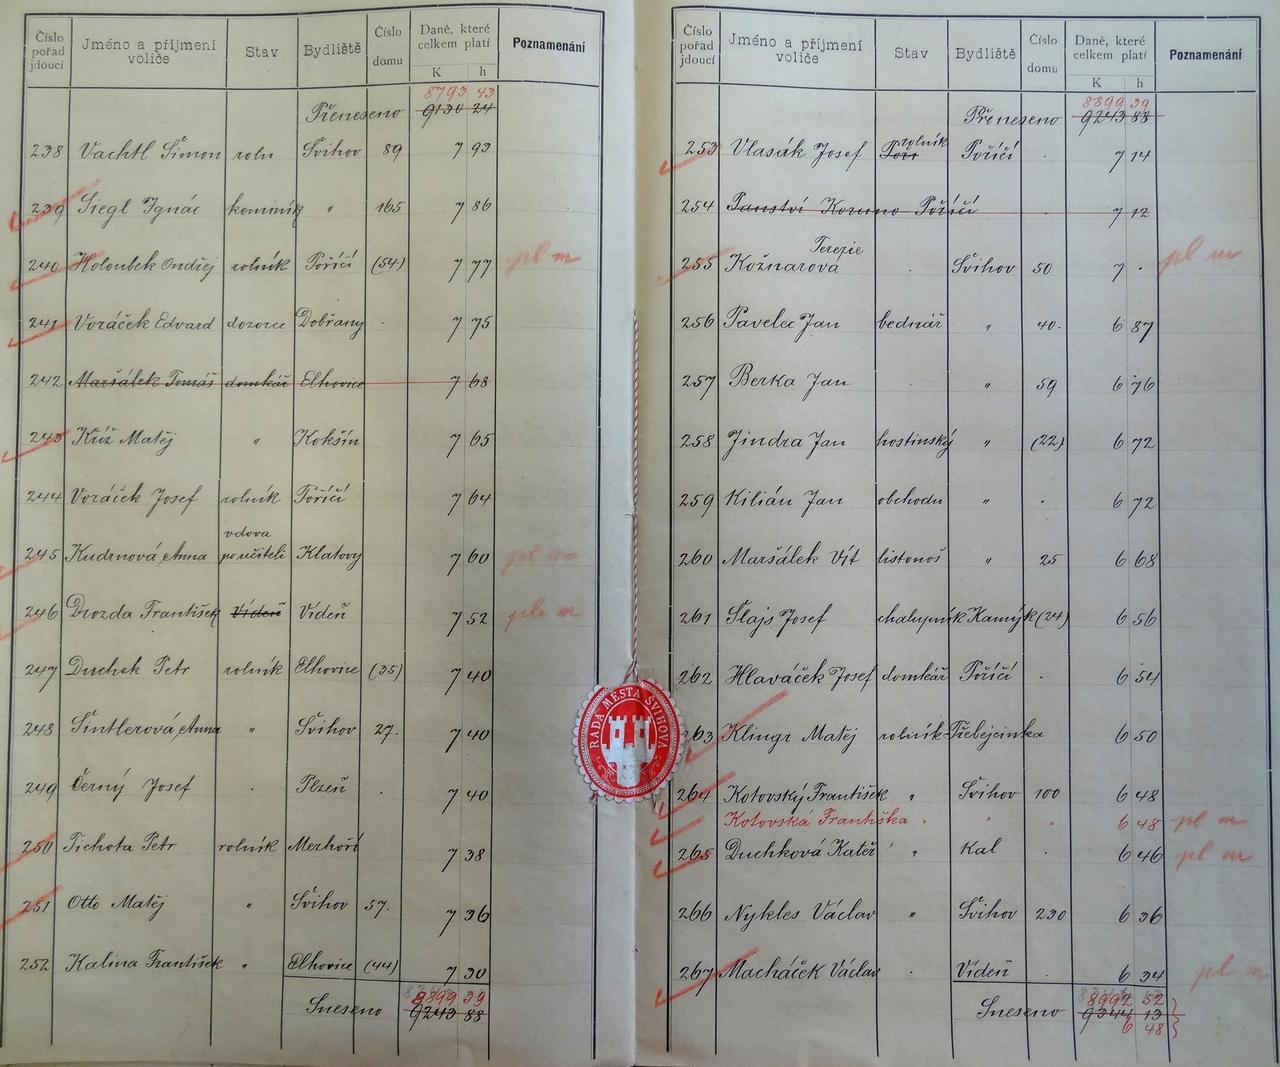 Číslo pořad jdoucí Jméno a příjmení voliče Stav Bydliště Číslo domu Daně, které celkem platí K h Poznamenání
8793 43
Přeneseno 9130 24
238 Vachtl Šimon roln Švihov 89 7 93
239 Siegl Ignác kominík " 165 7 86
240 Holoubek Ondřej rolník Poříčí (54) 7 77 pl m
241 Voráček Edvard dozorce Dobřany . 7 75
242 Maršálek Tomáš domkář Elhovice 7 68
243 Kříž Matěj " Kokšín 7 65
244 Voráček Josef rolník Poříčí 7 64
vdova
245 Kudrnová Anna po učiteli Klatovy 7 60 pl m
246 Drozda František Vídeň Vídeň 7 52 pl m
247 Duchek Petr rolník Elhovice (35) 7 40
248 Šintlerová Anna " Švihov 27. 7 40
249 Černý Josef . Plzeň . 7 40
250 Tichota Petr rolník Mezhoří 7 38
251 Otto Matěj " Švihov 57. 7 36
252 Kalina František " Elhovice (44) 7 30
8899 39
Sneseno 9243 88
RADA MĚSTA ŠVIHOVA
Číslo pořad jdoucí Jméno a příjmení voliče Stav Bydliště Číslo domu Daně, které celkem platí K h Poznamenání
8899 39
Přeneseno 9243 88
rolník
253 Vlasák Josef Poříčí . 7 14
254 Panství Koruno Poříčí . 7 12
Terezie
255 Kožnarová . Švihov 50 7 . pl m
256 Pavelec Jan bednář " 40. 6 87
257 Berka Jan . " 59 6 76
258 Jindra Jan hostinský " (22) 6 72
259 Kilián Jan obchodn " . 6 72
260 Maršálek Vít listonoš " 25 6 68
261 Šlajs Josef chalupník Kamýk (24) 6 56
262 Hlaváček Josef domkář Poříčí . 6 54
263 Klingr Matěj rolník Třebejcinka 6 50
264 Kotovský František " Švihov 100 6 48
Kotovská Františka " " " 6 48 pl m
265 Duchková Kateř " Kal . 6 46 pl m
266 Nykles Václav " Švihov 230 6 36
267 Macháček Václav . Vídeň . 6 34 pl m
8992 52
Sneseno 9344 13
6 48